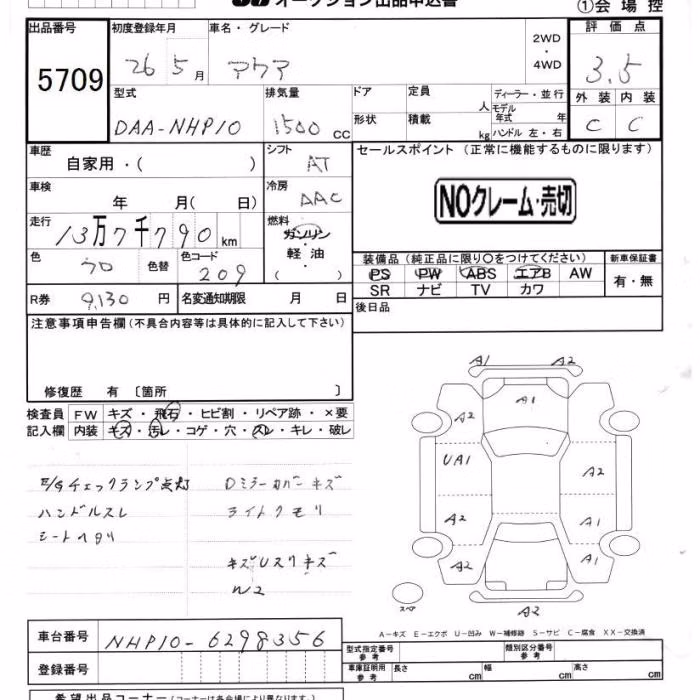 オークション出品申込書 ①会場控
出品番号 初度登録年月 車名・グレード 2WD・4WD 評価点
5709 26 5月 アクア 3.5
型式 排気量 ドア 定員 人 ディーラー・並行 外装 内装
DAA-NHP10 1500 CC 形状 積載 kg モデル年式 年 ハンドル 左・右 C C
車歴 自家用・( ) シフト AT セールスポイント (正常に機能するものに限ります)
車検 年 月( 日) 冷房 AAC NOクレーム・売切
走行 13万7千790km 燃料 ガソリン・軽油・( )
色 クロ 色替 色コード 209 装備品 (純正品に限り○をつけてください) 新車保証書
PS PW ABS エアB AW 有・無
SR ナビ TV カワ
R券 9,130円 名変通知期限 月 日 後日品
注意事項申告欄(不具合内容等は具体的に記入して下さい)
修復歴 有 〔箇所 〕
検査員 FW キズ・飛石・ヒビ割・リペア跡・×要
記入欄 内装 キズ・汚レ・コゲ・穴・スレ・キレ・破レ
E/Gチェックランプ点灯 Dミラーカバーキズ
ハンドルスレ ライトクモリ
シートヘタリ
キズUスリキズ
W2
A1 A2
A1
A2
UA1 A2
A2 A1
A2 A1
A2
スペア
A－キズ E－エクボ U－凹み W－補修跡 S－サビ C－腐食 XX－交換済
車台番号 NHP10-6298356 型式指定番号 参考 類別区分番号 参考
登録番号 車庫証明用 参考 長さ cm 幅 cm 高さ cm
希望出品コーナー(コーナーは各会場により異なります)